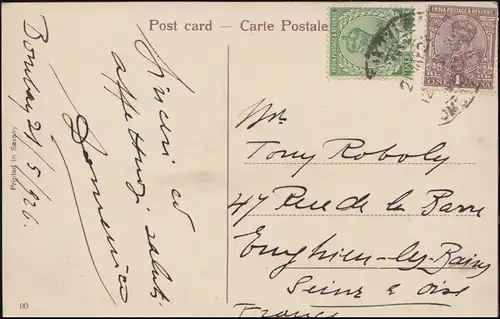 Post card — Carte Postale
INDIA POSTAGE & REVENUE
ONE 1A ANNA
Bombay 21/5/926.
Sinceri ed
affettuosi saluti
Domenico
Printed in Saxony
90
Mr
Tony Roboly
47 Rue de la Barre
Enghien-les-Bains
Seine & Oise
France